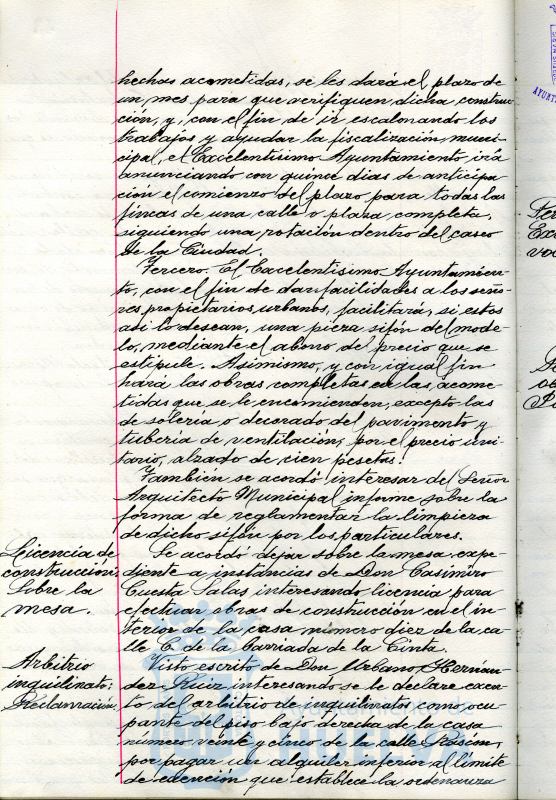 hechas acometidas, se les dará el plazo de
un mes para que verifiquen dicha construc-
ción, y, con el fin de ir escalonando los
trabajos y ayudar la fiscalización muni-
cipal, el Excelentísimo Ayuntamiento irá
anunciando con quince días de anticipa-
ción el comienzo del plazo para todas las
fincas de una calle o plaza completa,
siguiendo una rotación dentro del casco
de la Ciudad.
Tercero. El Excelentísimo Ayuntamien-
to, con el fin de dar facilidades a los seño-
res propietarios urbanos, facilitará, si estos
así lo desean, una pieza sifón del mode-
lo, mediante el abono del precio que se
estipule. Asimismo, y con igual fin
hará las obras completas en las acome-
tidas que se le encomienden, excepto las
de solería o decorado del pavimento y
tubería de ventilación, por el precio uni-
tario, alzado de cien pesetas!
También se acordó interesar del Señor
Arquitecto Municipal informe sobre la
forma de reglamentar la limpieza
de dicho sifón por los particulares.
Licencia de
construcción
Sobre la
mesa.
Se acordó dejar sobre la mesa expe-
diente a instancias de Don Casimiro
Cuesta Salas interesando licencia para
efectuar obras de construcción en el in-
terior de la casa número diez de la ca-
lle C. de la barriada de la Cinta.
Arbitrio
inquilinato:
Reclamación
Visto escrito de Don Urbano Hernán-
dez Ruiz interesando se le declare exen-
to del arbitrio de inquilinato como ocu-
pante del piso bajo derecha de la casa
número veinte y cinco de la calle Rascón,
por pagar un alquiler inferior al límite
de exención que establece la ordenanza